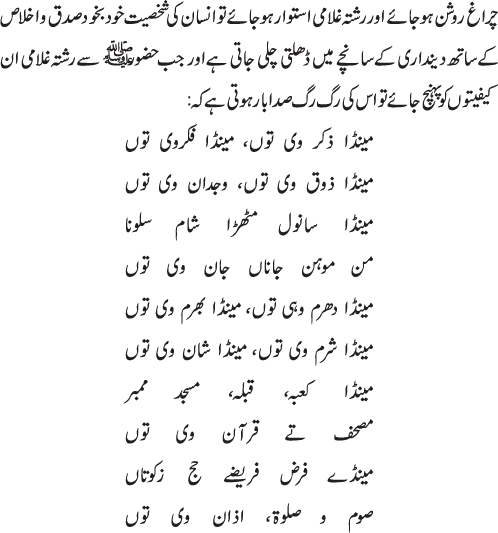 چراغ روشن ہو جائے اور رشتہ غلامی استوار ہو جائے تو انسان کی شخصیت خود بخود صدق و اخلاص
کے ساتھ دینداری کے سانچے میں ڈھلتی چلی جاتی ہے اور جب حضور ﷺ سے رشتہ غلامی ان
کیفیتوں کو پہنچ جائے تو اس کی رگ رگ صدا بار ہوتی ہے کہ:
مینڈا ذکر وی توں، مینڈا فکر وی توں
مینڈا ذوق وی توں، وجدان وی توں
مینڈا سانول مٹھڑا شام سلونا
من موہن جاناں جان وی توں
مینڈا دھرم وہی توں، مینڈا بھرم وی توں
مینڈا شرم وی توں، مینڈا شان وی توں
مینڈا کعبہ، قبلہ، مسجد ممبر
مصحف تے قرآن وی توں
مینڈے فرض فریضے حج زکوتاں
صوم و صلوۃ، اذان وی توں